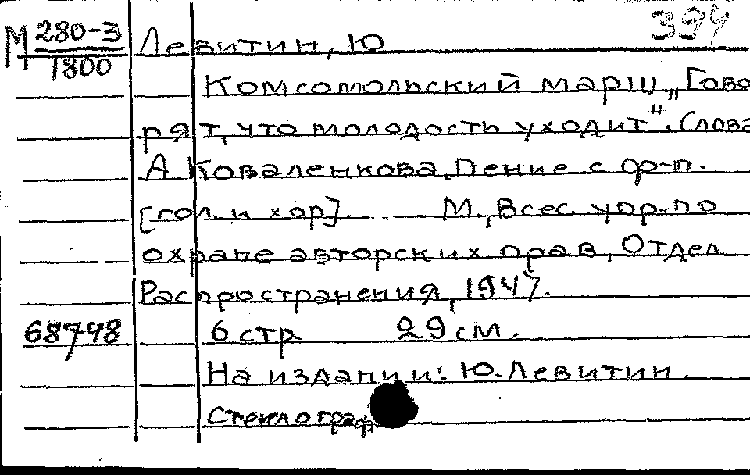 394
М 280-3
1800
Левитин, Ю
Комсомольский марш „Гово
рят, что молодость уходит". Слова
А Коваленкова. Пение с ф-п.
[гол. и хор] М., Всес. упр. по
охране авторских прав, Отдел
Распространения, 1947.
68748 6 стр. 29 см.
На издании: Ю. Левитин
Стеклограф